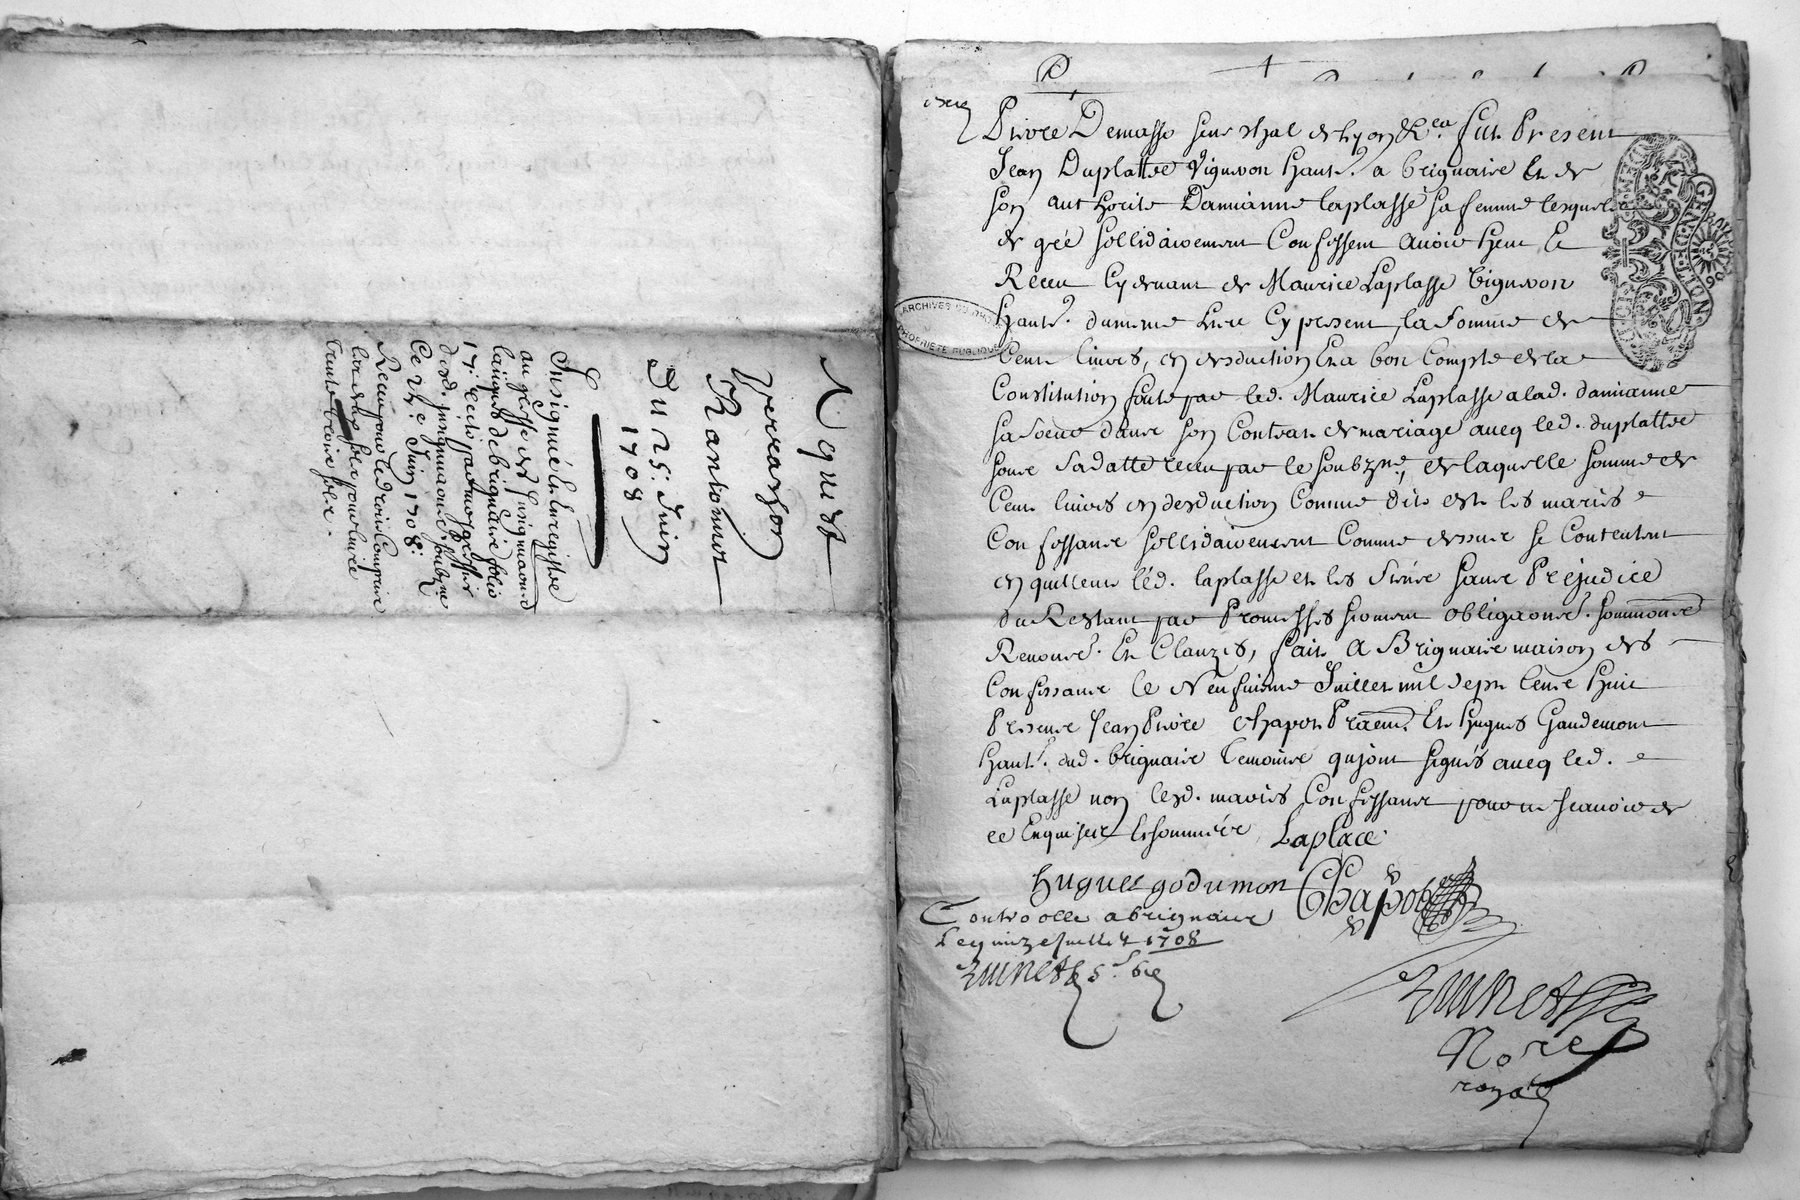 Aquest
Verrason
Rantonnot
Du 25e Juin
1708
Insignué et enregistré
au greffe des insignuaons
laiques de brignaire folio
17: recto par moy greffier
desd. insignuaons soubzne
Ce 25e Juin 1708:
Receu pour le droit Compris
trente trois solz.
Pierre Demasso senechal de Lyon &ea fut Present
Jean Duplattre Vigneron Hant. a brignaire Et de
son authorité Damianne laplasse sa femme lesquels
de gré sollidairement Confessent avoir heu Et
Receu Cy devant de Maurice Laplasse Vigneron
Hant. dumeme Lieu Cy present, la somme de
Cent livres, en desduction Et a bon Compte de la
Constitution faite par led. Maurice Laplasse a lad. damianne
sa soeur dans son Contrat de mariage avecq led. duplattre
sous sa datte receu par le soubzne, de laquelle somme de
Cent livres en desduction Comme dit est les mariés
Confessants sollidairement Comme dessus se Contentent
en quittent led. laplasse et les siens sans Prejudice
du Restant par Promesses serment obligaons. soumissions
Renons. Et Clauzes, fait A Brignaire maison des
Confessants le Neufuieme Juillet mil sept Cents huit
Presents Jean Pierre Chapot Praen. Et Hugues Gaudemont
Hants. dud. brignaire Temoins qu jont signés avecq led.
Laplasse non lesd. mariés Confessants pour ne scavoir de
ce Enquis et sommés Laplace
hugues godumon Chapot
Controolle a brignaire
Le quinze Juillet 1708
Nore
royal
GENERAL
LYON
ARCHIVES DU RHONE
PROPRIETE PUBLIQUE